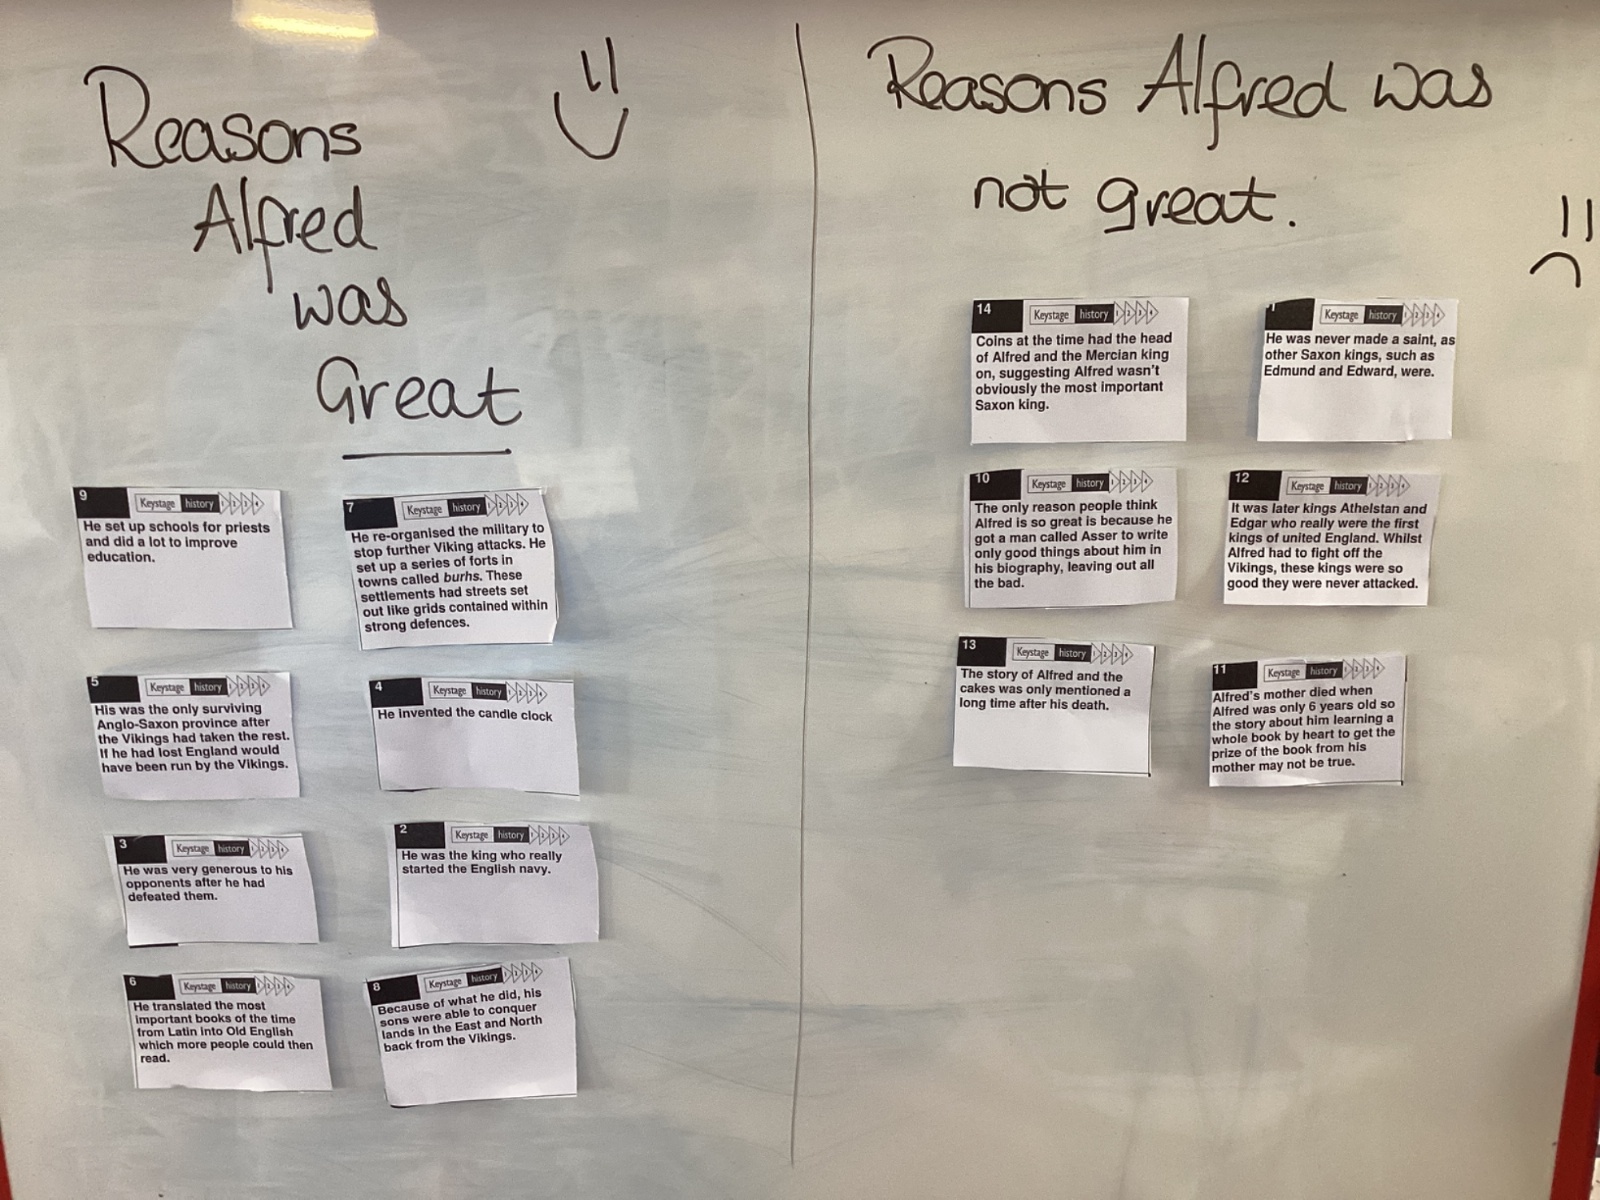 Reasons
Alfred
was
Great
9
Keystage history 1 2 3 4
He set up schools for priests
and did a lot to improve
education.
7
Keystage history 1 2 3 4
He re-organised the military to
stop further Viking attacks. He
set up a series of forts in
towns called burhs. These
settlements had streets set
out like grids contained within
strong defences.
5
Keystage history 1 2 3 4
His was the only surviving
Anglo-Saxon province after
the Vikings had taken the rest.
If he had lost England would
have been run by the Vikings.
4
Keystage history 1 2 3 4
He invented the candle clock
3
Keystage history 1 2 3 4
He was very generous to his
opponents after he had
defeated them.
2
Keystage history 1 2 3 4
He was the king who really
started the English navy.
6
Keystage history 1 2 3 4
He translated the most
important books of the time
from Latin into Old English
which more people could then
read.
8
Keystage history 1 2 3 4
Because of what he did, his
sons were able to conquer
lands in the East and North
back from the Vikings.
Reasons Alfred was
not great.
14
Keystage history 1 2 3 4
Coins at the time had the head
of Alfred and the Mercian king
on, suggesting Alfred wasn't
obviously the most important
Saxon king.
Keystage history 1 2 3 4
He was never made a saint, as
other Saxon kings, such as
Edmund and Edward, were.
10
Keystage history 1 2 3 4
The only reason people think
Alfred is so great is because he
got a man called Asser to write
only good things about him in
his biography, leaving out all
the bad.
12
Keystage history 1 2 3 4
It was later kings Athelstan and
Edgar who really were the first
kings of united England. Whilst
Alfred had to fight off the
Vikings, these kings were so
good they were never attacked.
13
Keystage history 1 2 3 4
The story of Alfred and the
cakes was only mentioned a
long time after his death.
11
Keystage history 1 2 3 4
Alfred's mother died when
Alfred was only 6 years old so
the story about him learning a
whole book by heart to get the
prize of the book from his
mother may not be true.